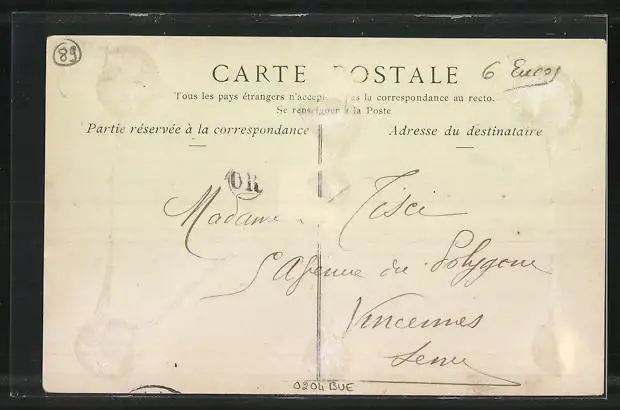 89
CARTE POSTALE
6 Euros
Tous les pays étrangers n'accep as la correspondance au recto.
Se renseigner à la Poste
Partie réservée à la correspondance
Adresse du destinataire
OR
Madame Tisci
5 Avenue du Polygone
Vincennes
Seine
0204 BUE